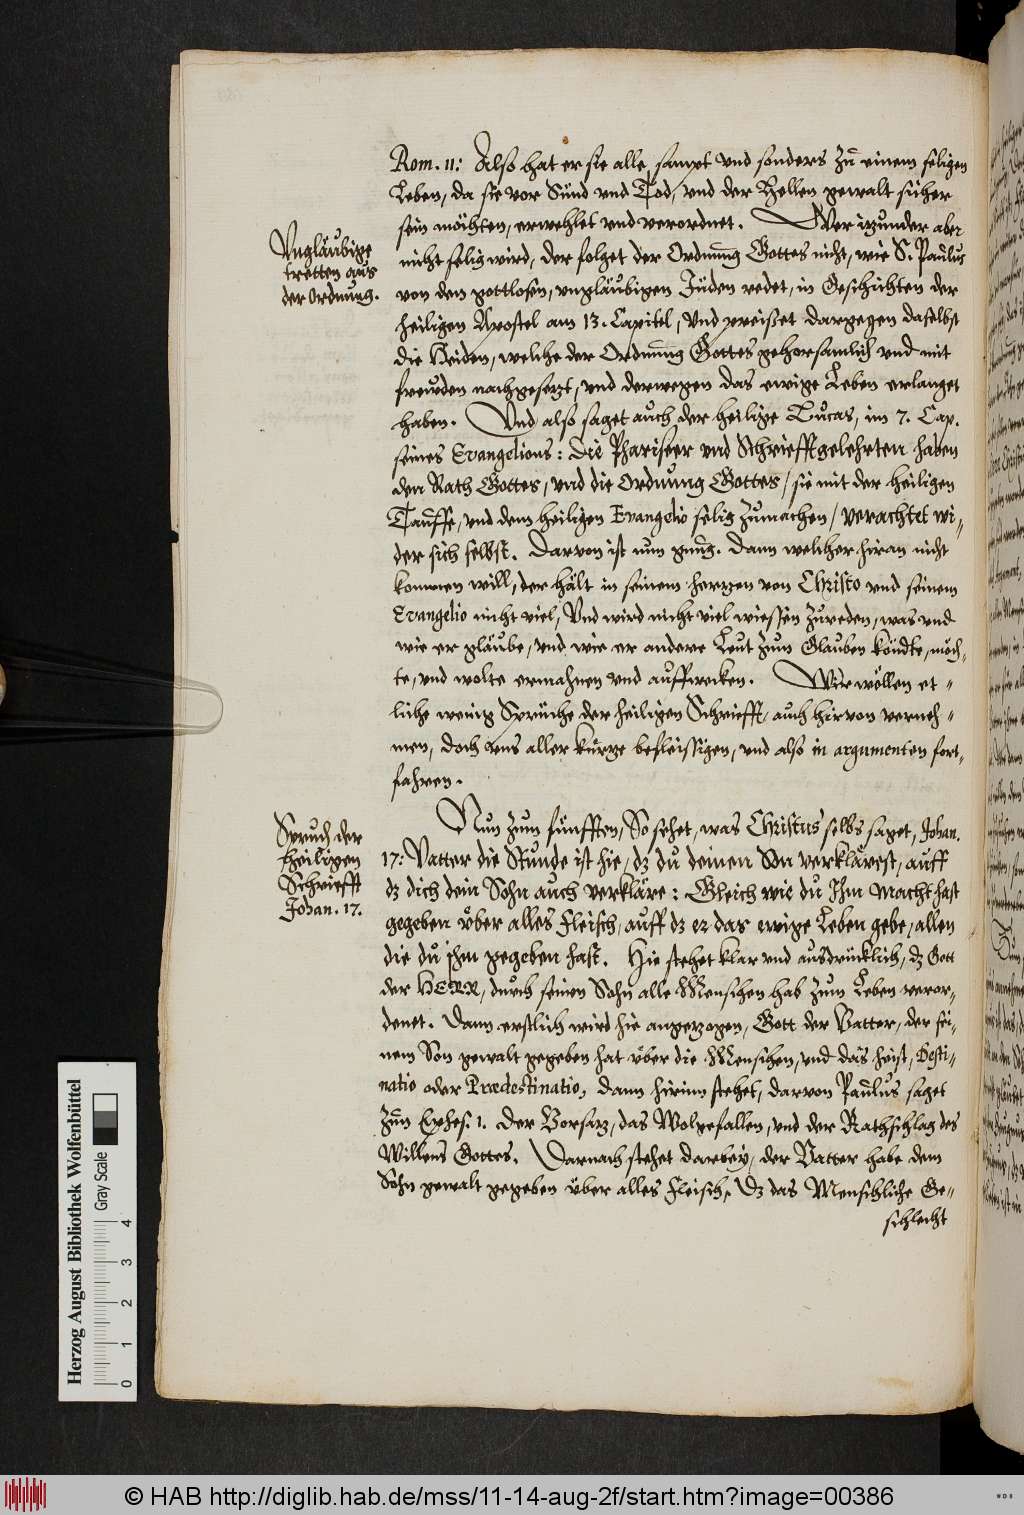 Rom. 11: Also hat er sie alle sampt vnd sonders zů einem seligen
Leben, da sie vor Sünd vnd Tod, vnd der Hellen gewalt sicher
sein möchten, erwehlet vnd verordnet. Wer jtzunder aber
nicht selig wird, der folget der Ordnung Gottes nicht, wie S. Paulus
von den gottlosen, vngläubigen Jüden redet, in Geschichten der
heiligen Apostel am 13. Capitel, Vnd preißet dargegen daselbst
die Heiden, welche der Ordnung Gottes gehorsamlich vnd mit
frewden nachgesetzt, vnd derwegen das ewige Leben erlanget
haben. Vnd also saget auch der heilige Lucas, im 7. Cap.
seines Evangelions: Die Phariseer vnd Schriefftgelehrten haben
den Rath Gottes, vnd die Ordnung Gottes, sie mit der heiligen
Tauffe, vnd dem heiligen Evangelio selig zumachen, verachtet wi-
der sich selbst. Darvon ist nun gnug. Dann welcher hiran nicht
kommen will, der hält in seinem hertzen von Christo vnd seinem
Evangelio nicht viel, Vnd wird nicht viel wiessen zureden, was vnd
wie er gläube, vnd wie er andere Leut zum Glauben köndte, möch-
te, vnd wolte ermahnen vnd auffwecken. Wir wöllen et-
liche wenig Sprüche der heiligen Schriefft, auch hirvon verneh-
men, doch vns aller kürtze befleissigen, vnd also in argumenten fort-
fahren.
Vngläubige
tretten aus
der Ordnung.
Nun zum fünfften, So sehet, was Christus selbs saget, Johan.
17: Vatter die Stunde ist hie, dz du deinen Son verklärest, auff
dz dich dein Sohn auch verkläre: Gleich wie du Ihm macht hast
gegeben vber alles Fleisch, auff dz er das ewige Leben gebe, allen
die du ihm gegeben hast. Hie stehet klar vnd ausdrücklich, dz Gott
der HERR, durch seinen Sohn alle Menschen hab zum Leben veror-
denet. Dann erstlich wird hie angezogen, Gott der Vatter, der sei-
nem Son gewalt gegeben hat vber die Menschen, vnd das heist, Desti-
natio oder Prædestinatio, dann hirinn stehet, darvon Paulus saget
zun Ephes. 1. Der Vorsatz, das Wolgefallen, vnd der Rathschlag des
Willens Gottes. Darnach stehet darbey, der Vatter habe dem
Sohn gewalt gegeben über alles Fleisch, Dz das Menschliche Ge-
schlecht
Spruch der
heiligen
Schriefft
Johan. 17.
Herzog August Bibliothek Wolfenbüttel
Gray Scale
0 1 2 3 4
© HAB http://diglib.hab.de/mss/11-14-aug-2f/start.htm?image=00386